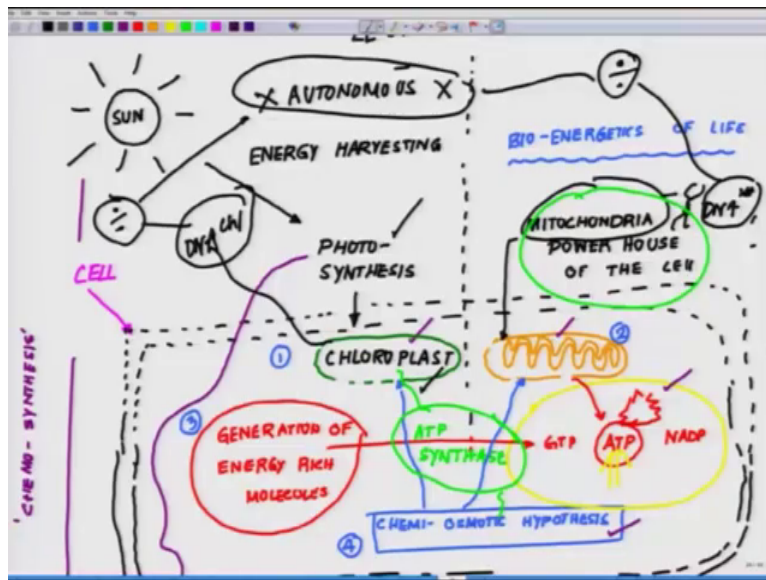 SUN
X AUTONOMOUS X
ENERGY HARVESTING
BIO-ENERGETICS OF LIFE
DNA
CELL
PHOTO-
SYNTHESIS
MITOCHONDRIA
POWER HOUSE
OF THE CELL
DNA
'CHEMO-SYNTHESIS'
1
CHLOROPLAST
2
3
GENERATION OF
ENERGY RICH
MOLECULES
ATP
SYNTHASE
GTP
ATP
NADP
4
CHEMI-OSMOTIC HYPOTHESIS